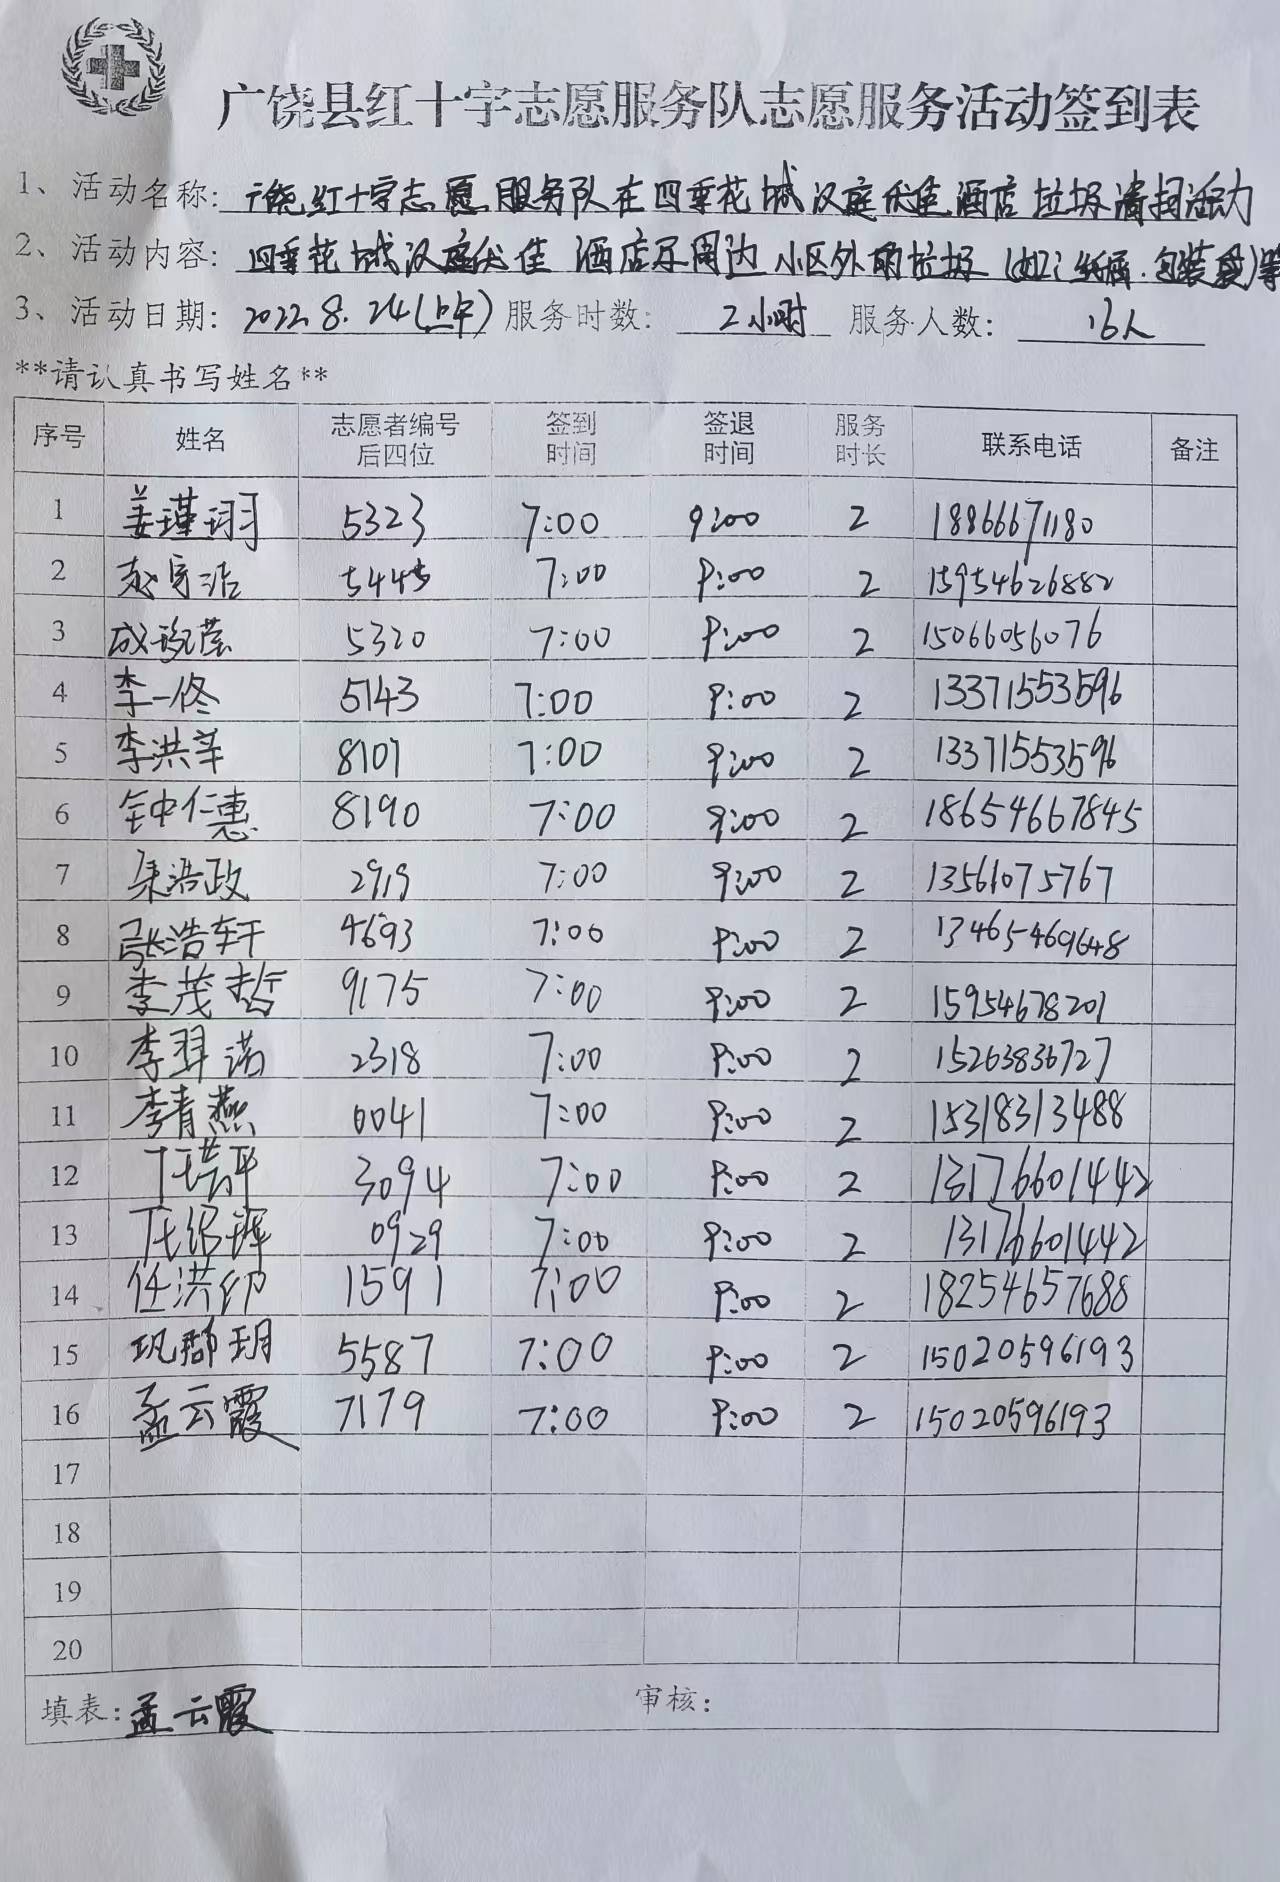 广饶县红十字志愿服务队志愿服务活动签到表
1、活动名称: 广饶红十字志愿服务队在四季花城汉庭优佳酒店垃圾清扫活动
2、活动内容: 四季花城汉庭优佳酒店及周边小区外的垃圾(如:纸屑.包装袋)等
3、活动日期: 2022.8.24(上午) 服务时数: 2小时 服务人数: 16人
**请认真书写姓名**
序号 姓名 志愿者编号后四位 签到时间 签退时间 服务时长 联系电话 备注
1 姜瑾玥 5323 7:00 9:00 2 18866671180
2 赵宇浩 5445 7:00 9:00 2 15954626882
3 成 5320 7:00 9:00 2 15066056076
4 李一佟 5143 7:00 9:00 2 13371553596
5 李洪莘 8107 7:00 9:00 2 13371553596
6 钟仁惠 8190 7:00 9:00 2 18654667845
7 朱浩政 2919 7:00 9:00 2 13561075767
8 张浩轩 4693 7:00 9:00 2 13465469648
9 李茂哲 9175 7:00 9:00 2 15954678201
10 李羿诺 2318 7:00 9:00 2 15263836727
11 李青燕 0041 7:00 9:00 2 15318313488
12 3094 7:00 9:00 2 13176601442
13 0929 7:00 9:00 2 13176601442
14 任洪印 1591 7:00 9:00 2 18254657688
15 巩郡玥 5587 7:00 9:00 2 15020596193
16 孟云霞 7179 7:00 9:00 2 15020596193
17
18
19
20
填表: 孟云霞 审核: